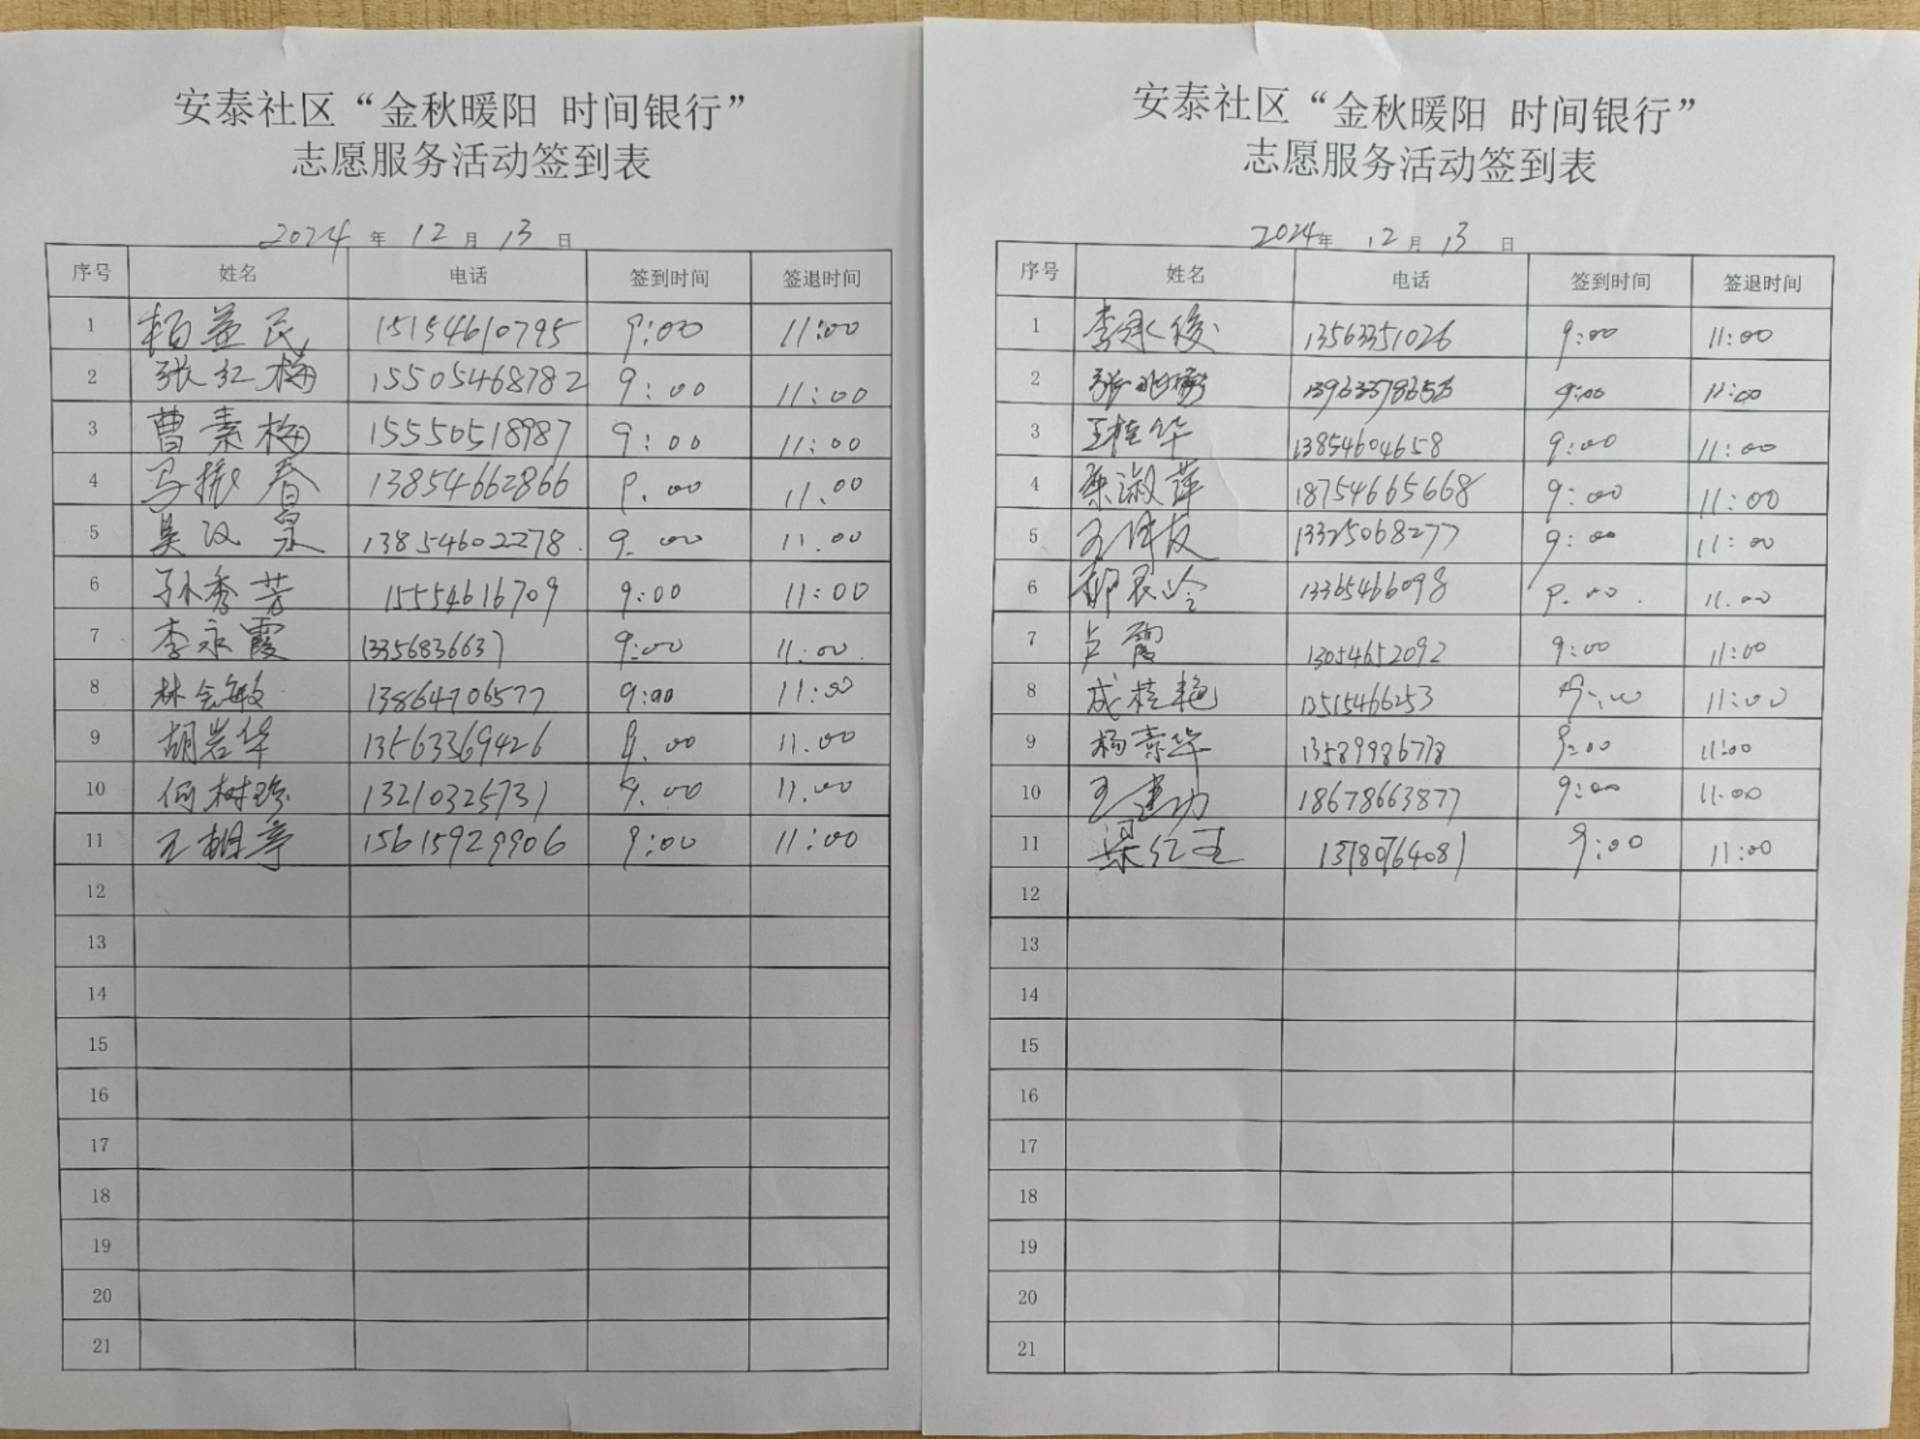 安泰社区“金秋暖阳 时间银行”
志愿服务活动签到表
2024 年 12 月 13 日
序号 姓名 电话 签到时间 签退时间
1 柏益民 15154610795 9:00 11:00
2 张红梅 15505468782 9:00 11:00
3 曹素梅 15550518987 9:00 11:00
4 马振春 13854662866 9.00 11.00
5 吴汉泉 13854602278. 9.00 11.00
6 孙秀芳 15554616709 9:00 11:00
7 李永霞 13356836637 9:00 11:00.
8 林会敏 13864706577 9:00 11:00
9 胡岩华 13563369426 9.00 11.00
10 何树珍 13210325731 9.00 11.00
11 王朝亭 15615929906 9:00 11:00
12
13
14
15
16
17
18
19
20
21
安泰社区“金秋暖阳 时间银行”
志愿服务活动签到表
2024年 12月 13 日
序号 姓名 电话 签到时间 签退时间
1 李承俊 13563351026 9:00 11:00
2 9:00 11:00
3 王桂华 13854604658 9:00 11:00
4 桑淑萍 18754665668 9:00 11:00
5 13325068277 9:00 11:00
6 13365466098 9.00. 11.00
7 卢霞 13054652092 9:00 11:00
8 成桂艳 13515466253 9:00 11:00
9 杨素华 13589986778 9:00 11:00
10 王建功 18678663877 9:00 11:00
11 梁红玉 15780764081 9:00 11:00
12
13
14
15
16
17
18
19
20
21